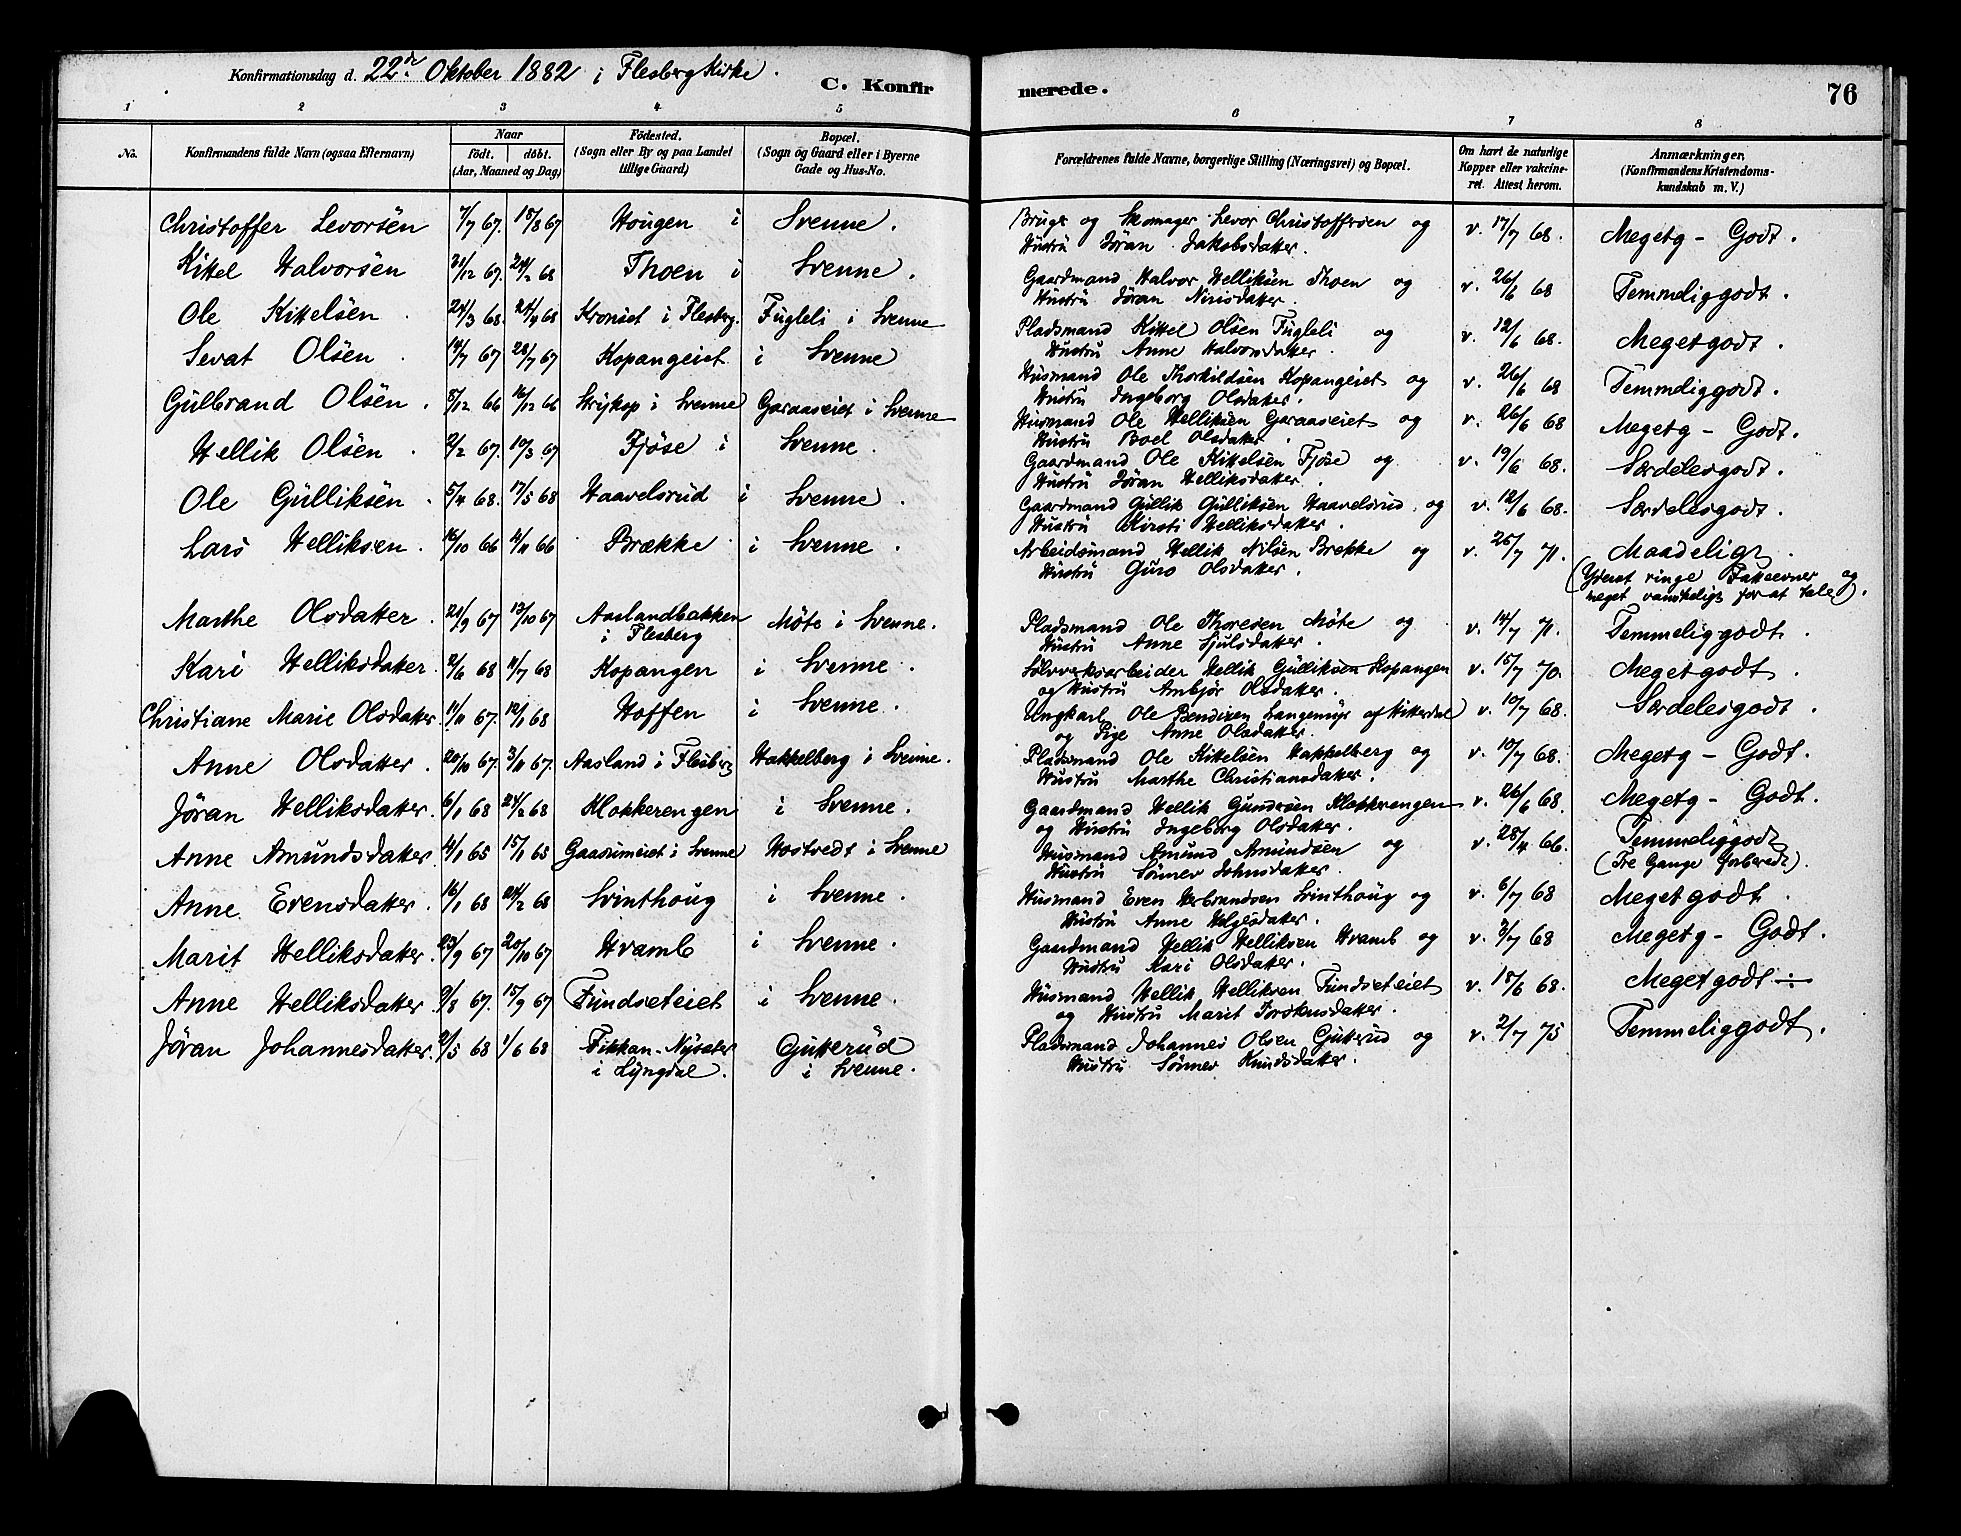 Konfirmationsdag d. 22de Oktober 1882 i Flesberg Kirke.
C. Konfirmerede.
76
1 2 3 4 5 6 7 8
No.
Konfirmandens fulde Navn (ogsaa Efternavn)
Naar
født. døbt.
(Aar, Maaned og Dag)
Fødested.
(Sogn eller By og paa Landet
tillige Gaard)
Bopæl.
(Sogn og Gaard eller i Byerne
Gade og Hus-No.
Forældrenes fulde Navne, borgerlige Stilling (Næringsvei) og Bopæl.
Om havt de naturlige
Kopper eller vakcine-
ret. Attest herom.
Anmærkninger.
(Konfirmandens Kristendoms-
kundskab m. V.)
Christoffer Levorsen 7/7 67. 15/8 67 Hougen i Svenne. Bruger og Skomager Levor Christoffersen og v. 17/7 68. Megetg - Godt.
Hustru Jøran Jakobsdatter.
Kittel Halvorsen 31/12 67. 24/2 68 Thoen i Svenne. Gaardmand Halvor Helliksen Thoen og v. 26/6 68 Temmeliggodt.
Hustru Jøran Nirisdatter.
Ole Kittelsen 24/3 68. 24/4 68 Kronset i Flesberg. Fugleli i Svenne Pladsmand Kittel Olsen Fugleli og v. 12/6 68. Megetgodt.
Hustru Anne Halvorsdatter.
Sevat Olsen 14/7 67 28/7 67 Kopangeiet i Svenne Husmand Ole Thorkildsen Kopangeiet og v. 26/6 68 Temmeliggodt.
Hustru Ingeborg Olsdatter.
Gulbrand Olsen. 5/12 66 16/12 66 Skriskop i Svenne Garaaseiet i Svenne Husmand Ole Helliksen Garaaseiet og v. 26/6 68 Megetg - Godt.
Hustru Boel Olsdatter.
Hellik Olsen 2/2 67. 10/3 67 Fjøse i Svenne. Gaardmand Ole Kittelsen Fjøse og v. 19/6 68. Særdelesgodt.
Hustru Jøran Helliksdatter.
Ole Gulliksen 5/4 68. 17/5 68 Haavelsrud i Svenne. Gaardmand Gullik Gulliksen Haavelsrud og v. 12/6 68. Særdelesgodt.
Hustru Kirsti Helliksdatter.
Lars Helliksen. 16/10 66 4/11 66 Brække i Svenne. Arbeidsmand Hellik Nilsen Brække og v. 25/7 71. Maadeligt.
Hustru Guro Olsdatter.
(Yderst ringe Fatteevner og
meget vanskeligt for at tale).
Marthe Olsdatter 21/9 67 13/10 67 Aaslandbakken Møte i Svenne. Pladsmand Ole Thoresen Møte og v. 14/7 71. Temmeliggodt.
i Flesberg Hustru Anne Sjulsdatter.
Kari Helliksdatter. 2/6 68 11/7 68 Kopangen i Svenne. Sølvverksarbeider Hellik Gulliksen Kopangen v. 15/7 70. Megetgodt.
og Hustru Ambjør Olsdatter.
Christiane Marie Olsdatter 11/11 67. 12/1 68 Hoffen i Svenne. Ungkarl Ole Bendixen Langemyr af Hitterdal v. 10/7 68. Særdelesgodt.
og Pige Anne Olsdatter.
Anne Olsdatter. 20/10 67. 3/11 67. Aasland i Flesberg Hakkelberg i Svenne. Pladsmand Ole Kittelsen Hakkelberg og v. 10/7 68. Megetg - Godt.
Hustru Marthe Christiansdatter.
Jøran Helliksdatter. 6/1 68 24/2 68 Klokkerengen i Svenne. Gaardmand Hellik Gundersen Klokkerengen v. 26/6 68. Megetg - Godt.
og Hustru Ingeborg Olsdatter.
Anne Amundsdatter. 4/1 65 15/1 65 Gaasumeiet i Svenne Hostvedt i Svenne Husmand Amund Amundsen og v. 28/4 66. Temmeliggodt
Hustru Sønnev Johnsdatter. (Tre Gange forberedt).
Anne Evensdatter. 16/1 68 24/2 68 Svinthoug i Svenne. Husmand Even Herbrandsen Svinthoug og v. 6/7 68 Megetgodt.
Hustru Anne Helgesdatter.
Marit Helliksdatter. 23/9 67 20/10 67 Hvamb i Svenne. Gaardmand Hellik Helliksen Hvamb og v. 3/7 68 Megetg - Godt.
Hustru Kari Olsdatter.
Anne Helliksdatter. 9/8 67. 15/9 67 Fundseteiet i Svenne. Husmand Hellik Helliksen Fundseteiet v. 18/6 68. Megetgodt ÷
og Hustru Marit Torstensdatter.
Jøran Johannesdatter. 2/5 68 1/6 68 Fikkan-Nysæter Gutterud Pladsmand Johannes Olsen Gutterud og v. 2/7 75 Temmeliggodt.
i Lyngdal. i Svenne. Hustru Sønnev Knudsdatter.